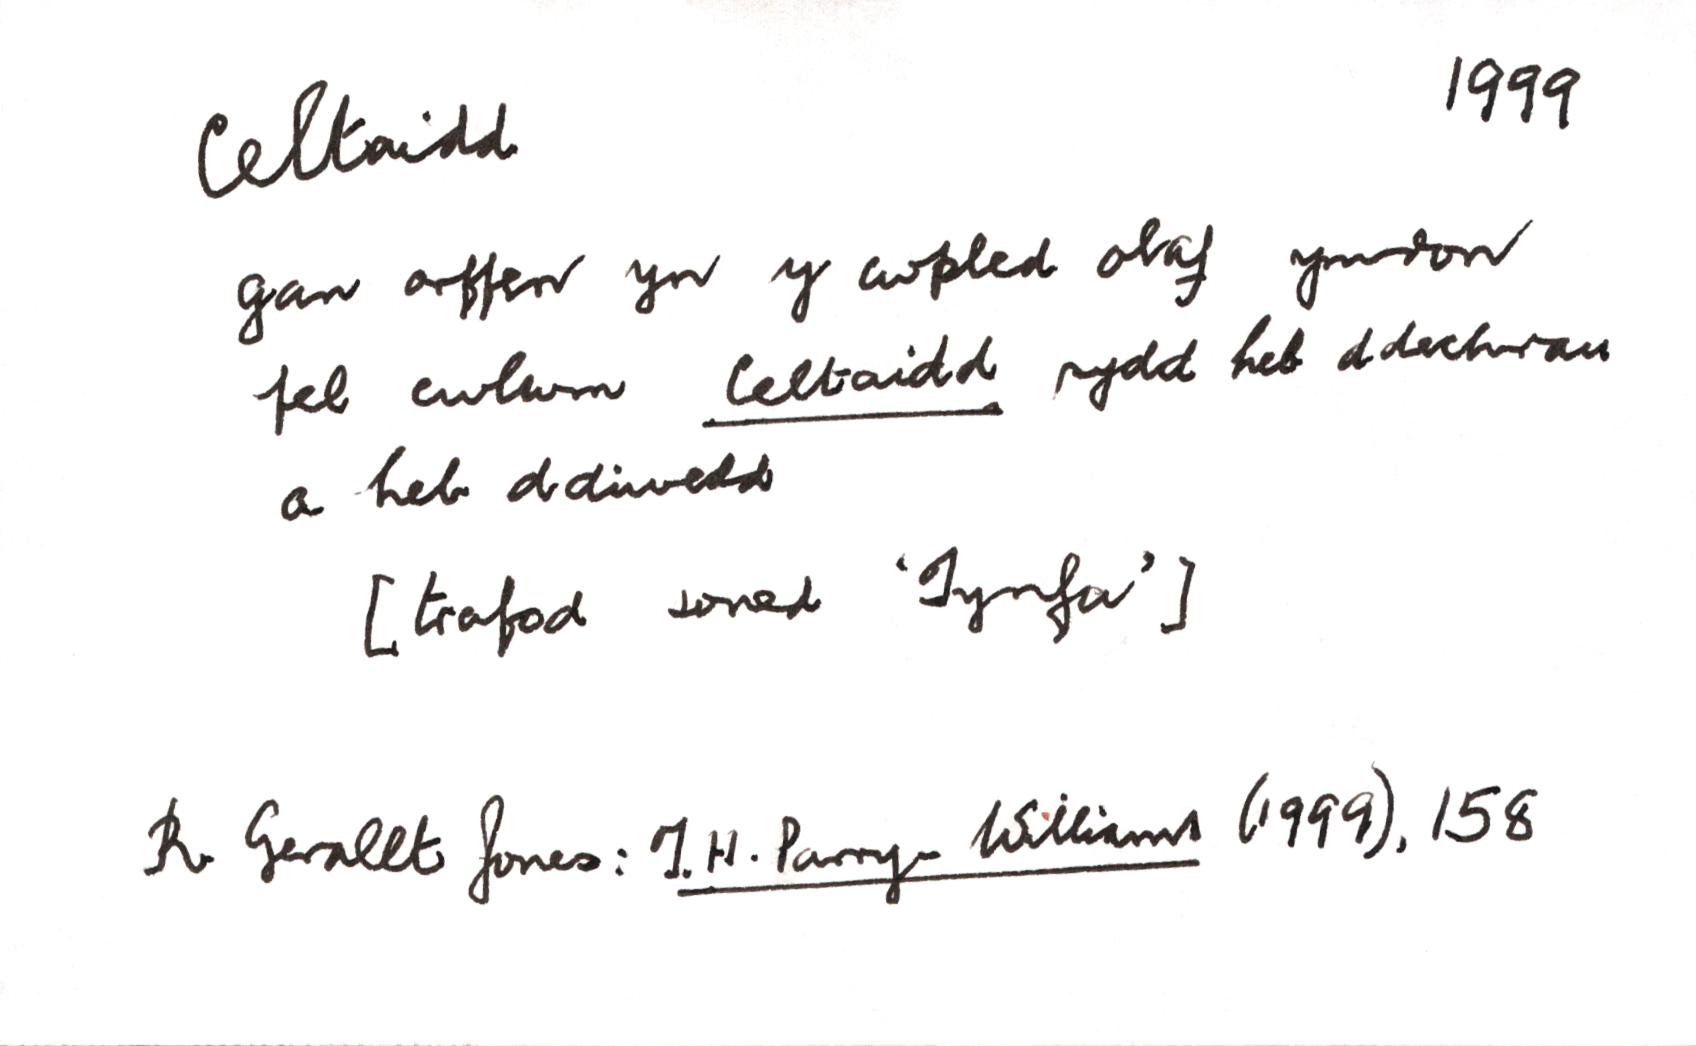 Celtaidd 1999
gan orffen yn y cwpled olaf ymron
fel cwlwm Celtaidd rydd heb ddechrau
a heb ddiwedd
[trafod soned 'Tynfa']
R. Gerallt Jones: T.H. Parry-Williams (1999), 158